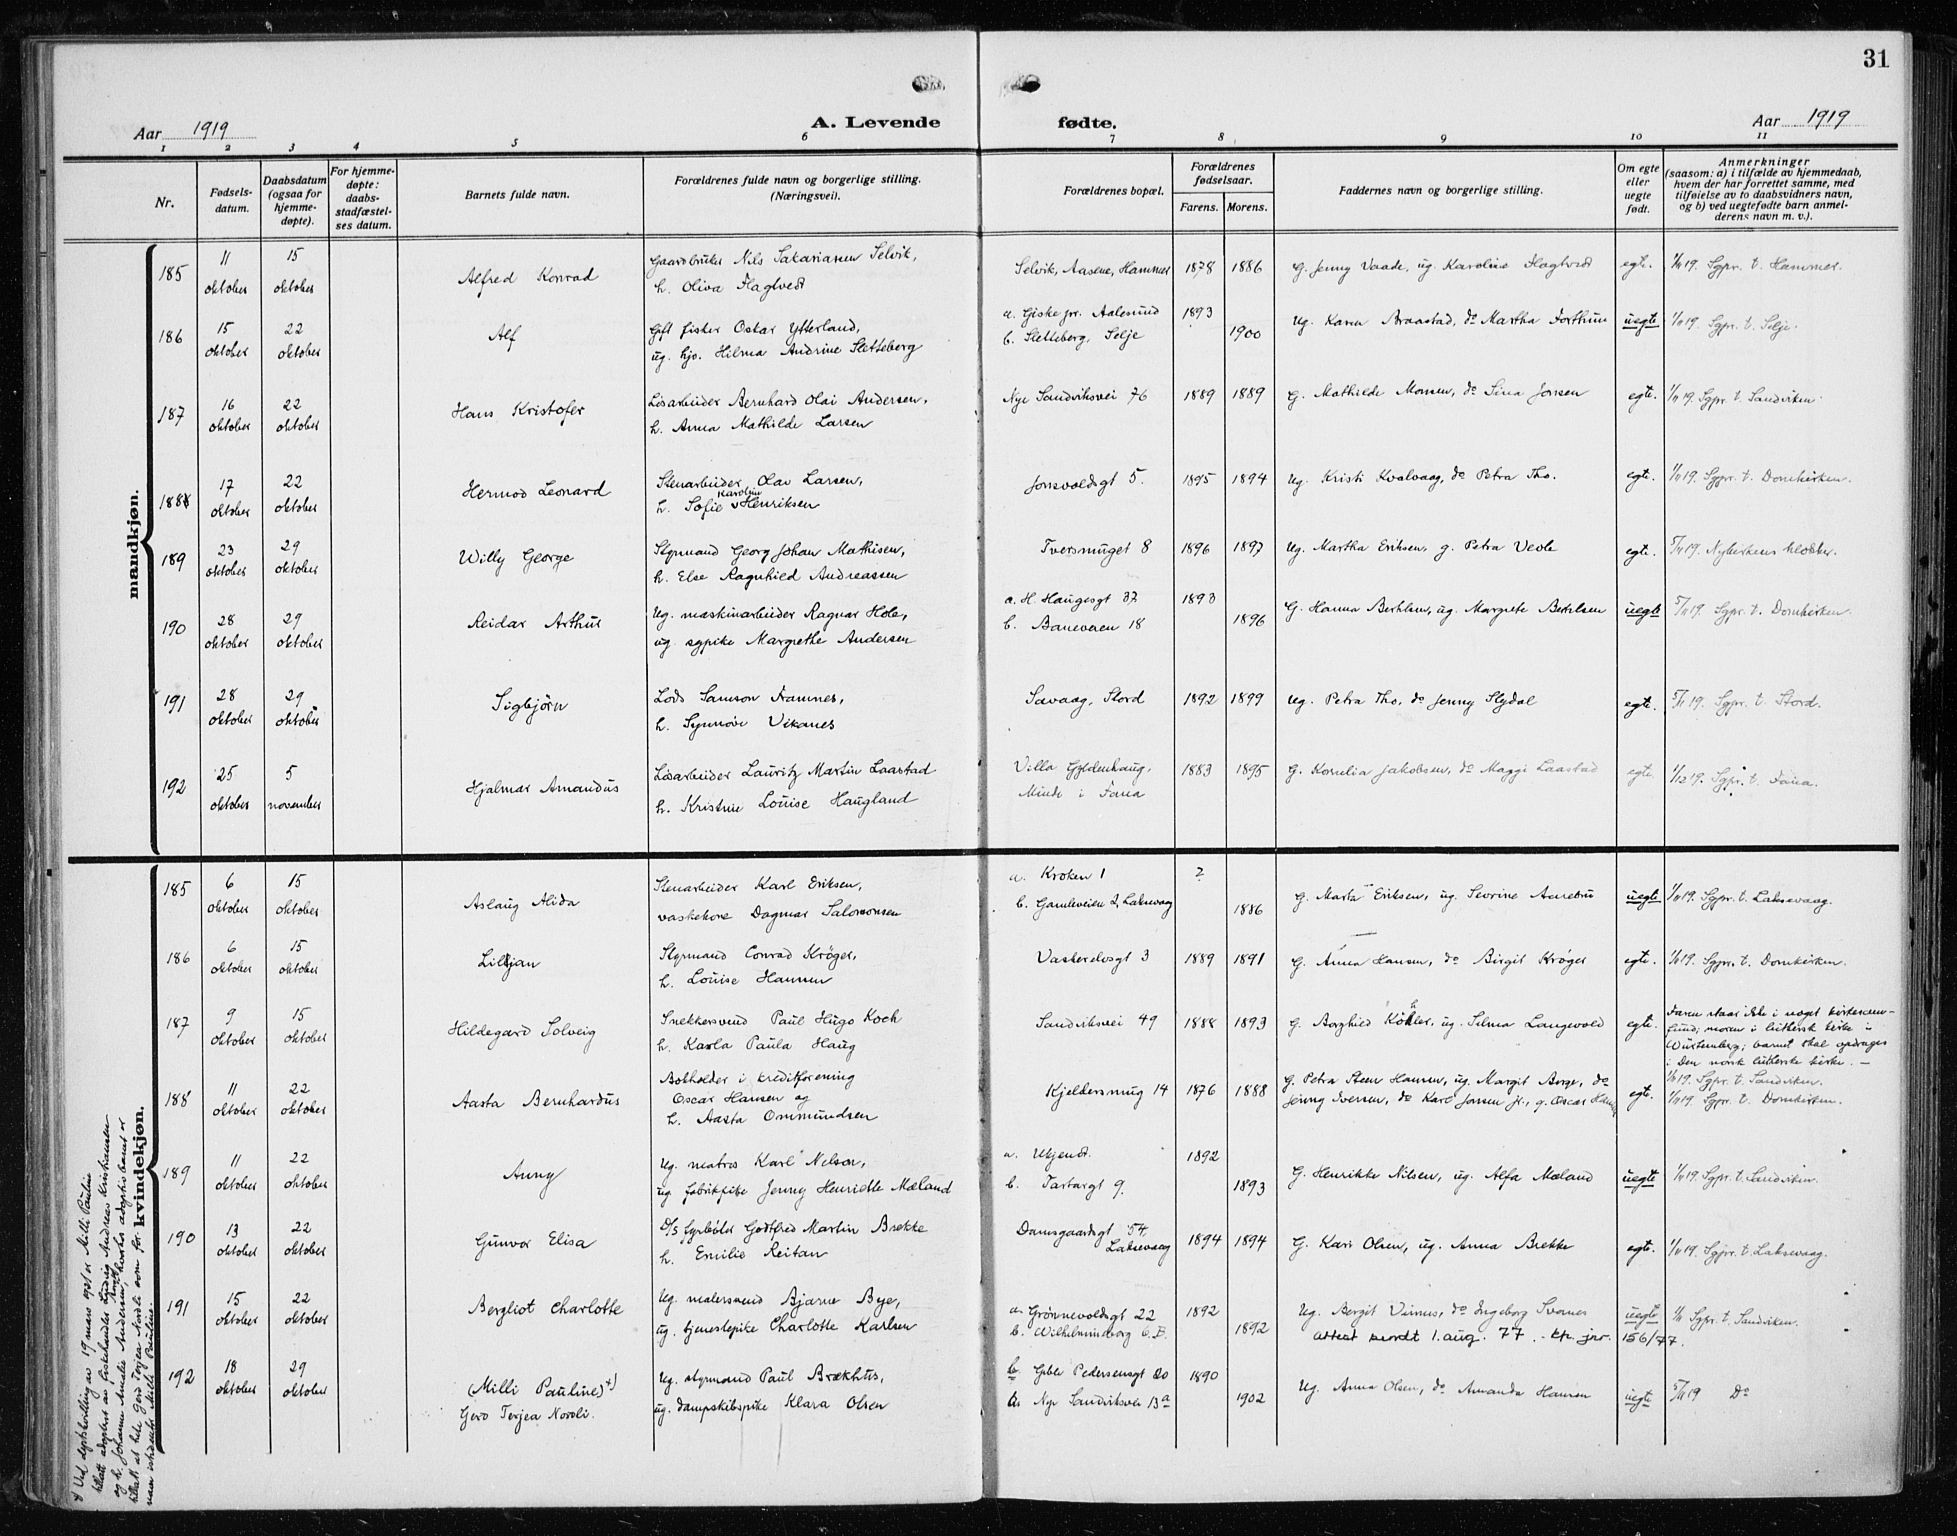 31
Aar 1919
A. Levende fødte.
Aar 1919
1 2 3 4 5 6 7 8 9 10 11
Nr.
Fødsels-
datum.
Daabsdatum
(ogsaa for
hjemme-
døpte).
For hjemme-
døpte:
daabs-
stadfæstel-
ses datum.
Barnets fulde navn.
Forældrenes fulde navn og borgerlige stilling.
(Næringsvei).
Forældrenes bopæl.
Forældrenes
fødselsaar.
Farens. Morens.
Faddernes navn og borgerlige stilling.
Om egte
eller
uegte
født.
Anmerkninger
(saasom: a) i tilfælde av hjemmedaab,
hvem der har forrettet samme, med
tilføielse av to daabsvidners navn,
og b) ved uegtefødte barn anmel-
derens navn m. v.).
mandkjøn.
185 11 oktober 15 oktober Alfred Konrad
Gaardbruker Nils Sakariasen Selvik,
h. Oliva Flagtvedt
Selvik, Aasene, Hammer 1878 1886 G. Jenny Vaade, ug. Karoline Flagtvedt egte. 1/11 19. Sgpr. t. Hammer.
186 15 oktober 22 oktober Alf
Gift fisker Oskar Ytterland,
ug. hjv. Hilma Andrine Sletteberg
a. Giske pr. Aalesund 1893
b. Sletteberg, Selje 1900
Ug. Karen Braastad, do Martha Forthun uegte 1/11 19. Sgpr. t. Selje.
187 16 oktober 22 oktober Hans Kristofer
Løsarbeider Bernhard Olai Andersen,
h. Anna Mathilde Larsen
Nye Sandviksvei 76 1889 1889 G. Mathilde Monsen, do Sina Jonsen egte. 1/11 19. Sgpr. t. Sandviken.
188 17 oktober 22 oktober Hermod Leonard
Stenarbeider Olav Larsen,
h. Sofie Karoline Henriksen
Jonsvoldsgt 5. 1895 1894 Ug. Kristi Kvalvaag, do Petra Tho. egte. 1/11 19. Sgpr. t. Domkirken.
189 23 oktober 29 oktober Willy George
Styrmand Georg Johan Mathisen,
h. Else Ragnhild Andreassen
Tversmuget 8 1896 1897 Ug. Martha Eriksen, g. Petra Vedle egte. 5/11 19. Nykirkens klokker.
190 28 oktober 29 oktober Reidar Arthur
Ug. maskinarbeider Ragnar Hole,
ug. sypike Margrethe Andersen
a. H. Haugesgt 37 1893
b. Baneveien 18 1896
G. Hanna Berhlsen, ug. Margrete Berhlsen uegte 5/11 19. Sgpr. t. Domkirken.
191 28 oktober 29 oktober Sigbjørn
Lods Samson Famnes,
h. Synnøve Vikanes
Sævaag, Stord 1892 1899 Ug. Petra Tho, do Jenny Slydal egte. 5/11 19. Sgpr. t. Stord.
192 25 oktober 5 november Hjalmar Amandus
Løsarbeider Lauritz Martin Laastad
h. Kristine Louise Haugland
Villa Gyldenhaug,
Minde i Fana
1883 1895 G. Kornelia Jakobsen, do Maggi Laastad egte. 1/12 19. Sgpr. t. Fana.
kvindekjøn.
185 6 oktober 15 oktober Aslaug Alida
Stenarbeider Karl Eriksen,
vaskekone Dagmar Salomonsen
a. Kroken 1 ?
b. Gamleveien 2, Laksevaag 1886
G. Marta Eriksen, ug. Sevrine Aarebru uegte 1/11 19. Sgpr. t. Laksevaag.
186 6 oktober 15 oktober Lilljan
Styrmand Conrad Krøger,
h. Louise Hansen
Vaskerelvsgt 3 1889 1891 G. Anna Hansen, do Birgit Krøger egte. 1/11 19. Sgpr. t. Domkirken.
187 9 oktober 15 oktober Hildegard Solveig
Snekkersvend Paul Hugo Koch
h. Karla Paula Haug
Sandviksvei 49 1888 1893 G. Borghild Köhler, ug. Selma Langevold egte.
Faren staar ikke i noget kirkesam-
fund; moren i luthersk kirke i
Würtemberg; barnet skal opdrages
i den norsk lutherske kirke. —
1/11 19. Sgpr. t. Sandviken.
188 11 oktober 22 oktober Aasta Bernhardus
Bokholder i kreditforening
Oscar Hansen og
h. Aasta Ommundsen
Kjeldersmug 14 1876 1888
G. Petra Steen Hansen, ug. Margit Berge, do
Jenny Iversen, do Karl Jonsen jr., g. Oscar Hansen
egte. 1/11 19. Sgpr. t. Domkirken.
189 11 oktober 22 oktober Anny
Ug. matros Karl Nelson,
ug. fabrikpike Jenny Henriette Mæland
a. Ukjendt. 1892
b. Tartargt 9. 1893
G. Henrikke Nilsen, ug. Alfa Mæland uegte 1/11 19. Sgpr. t. Sandviken.
190 13 oktober 22 oktober Gunvor Elisa
D/S fyrbøter Godtfred Martin Brekke
h. Emilie Reitan
Damsgaardsgt 54,
Laksevaag
1894 1894 G. Kari Olsen, ug. Anna Brekke egte. 1/11 19. Sgpr. t. Laksevaag.
191 15 oktober 22 oktober Bergliot Charlotte
Ug. malersvend Bjarne Bye,
ug. tjenestepike Charlotte Karlsen
a. Grønnevoldsgt 22 1892
b. Wilhelmineborg 6 B. 1892
Ug. Bergit Viinus, do Ingeborg Svornes uegte 1/11 Sgpr. t. Sandviken.
attest sendt 1. aug. 77. - kp. jnr. 156/77.
192 18 oktober 29 oktober (Milli Pauline) +)
Gerd Terjea Nordli.
Ug. styrmand Paul Brækhus,
ug. dampskibspike Klara Olsen
b. Gible Pedersensgt 20 1890
a. Nye Sandviksvei 13a 1902
Ug. Anna Olsen, do Amanda Hansen uegte 5/11 19 Do
+) Ved kgl. bevilling av 19 mars 1921 er Milli Pauline
tillatt adoptert av fiskehandler Ludvig Andreas Kristiansen
og h. Johanne Amalie Andersen, hvorhos adoptivbarnet er
tillatt at hete Gerd Terjea Nordli som for-
navn istedenfor Milli Pauline.